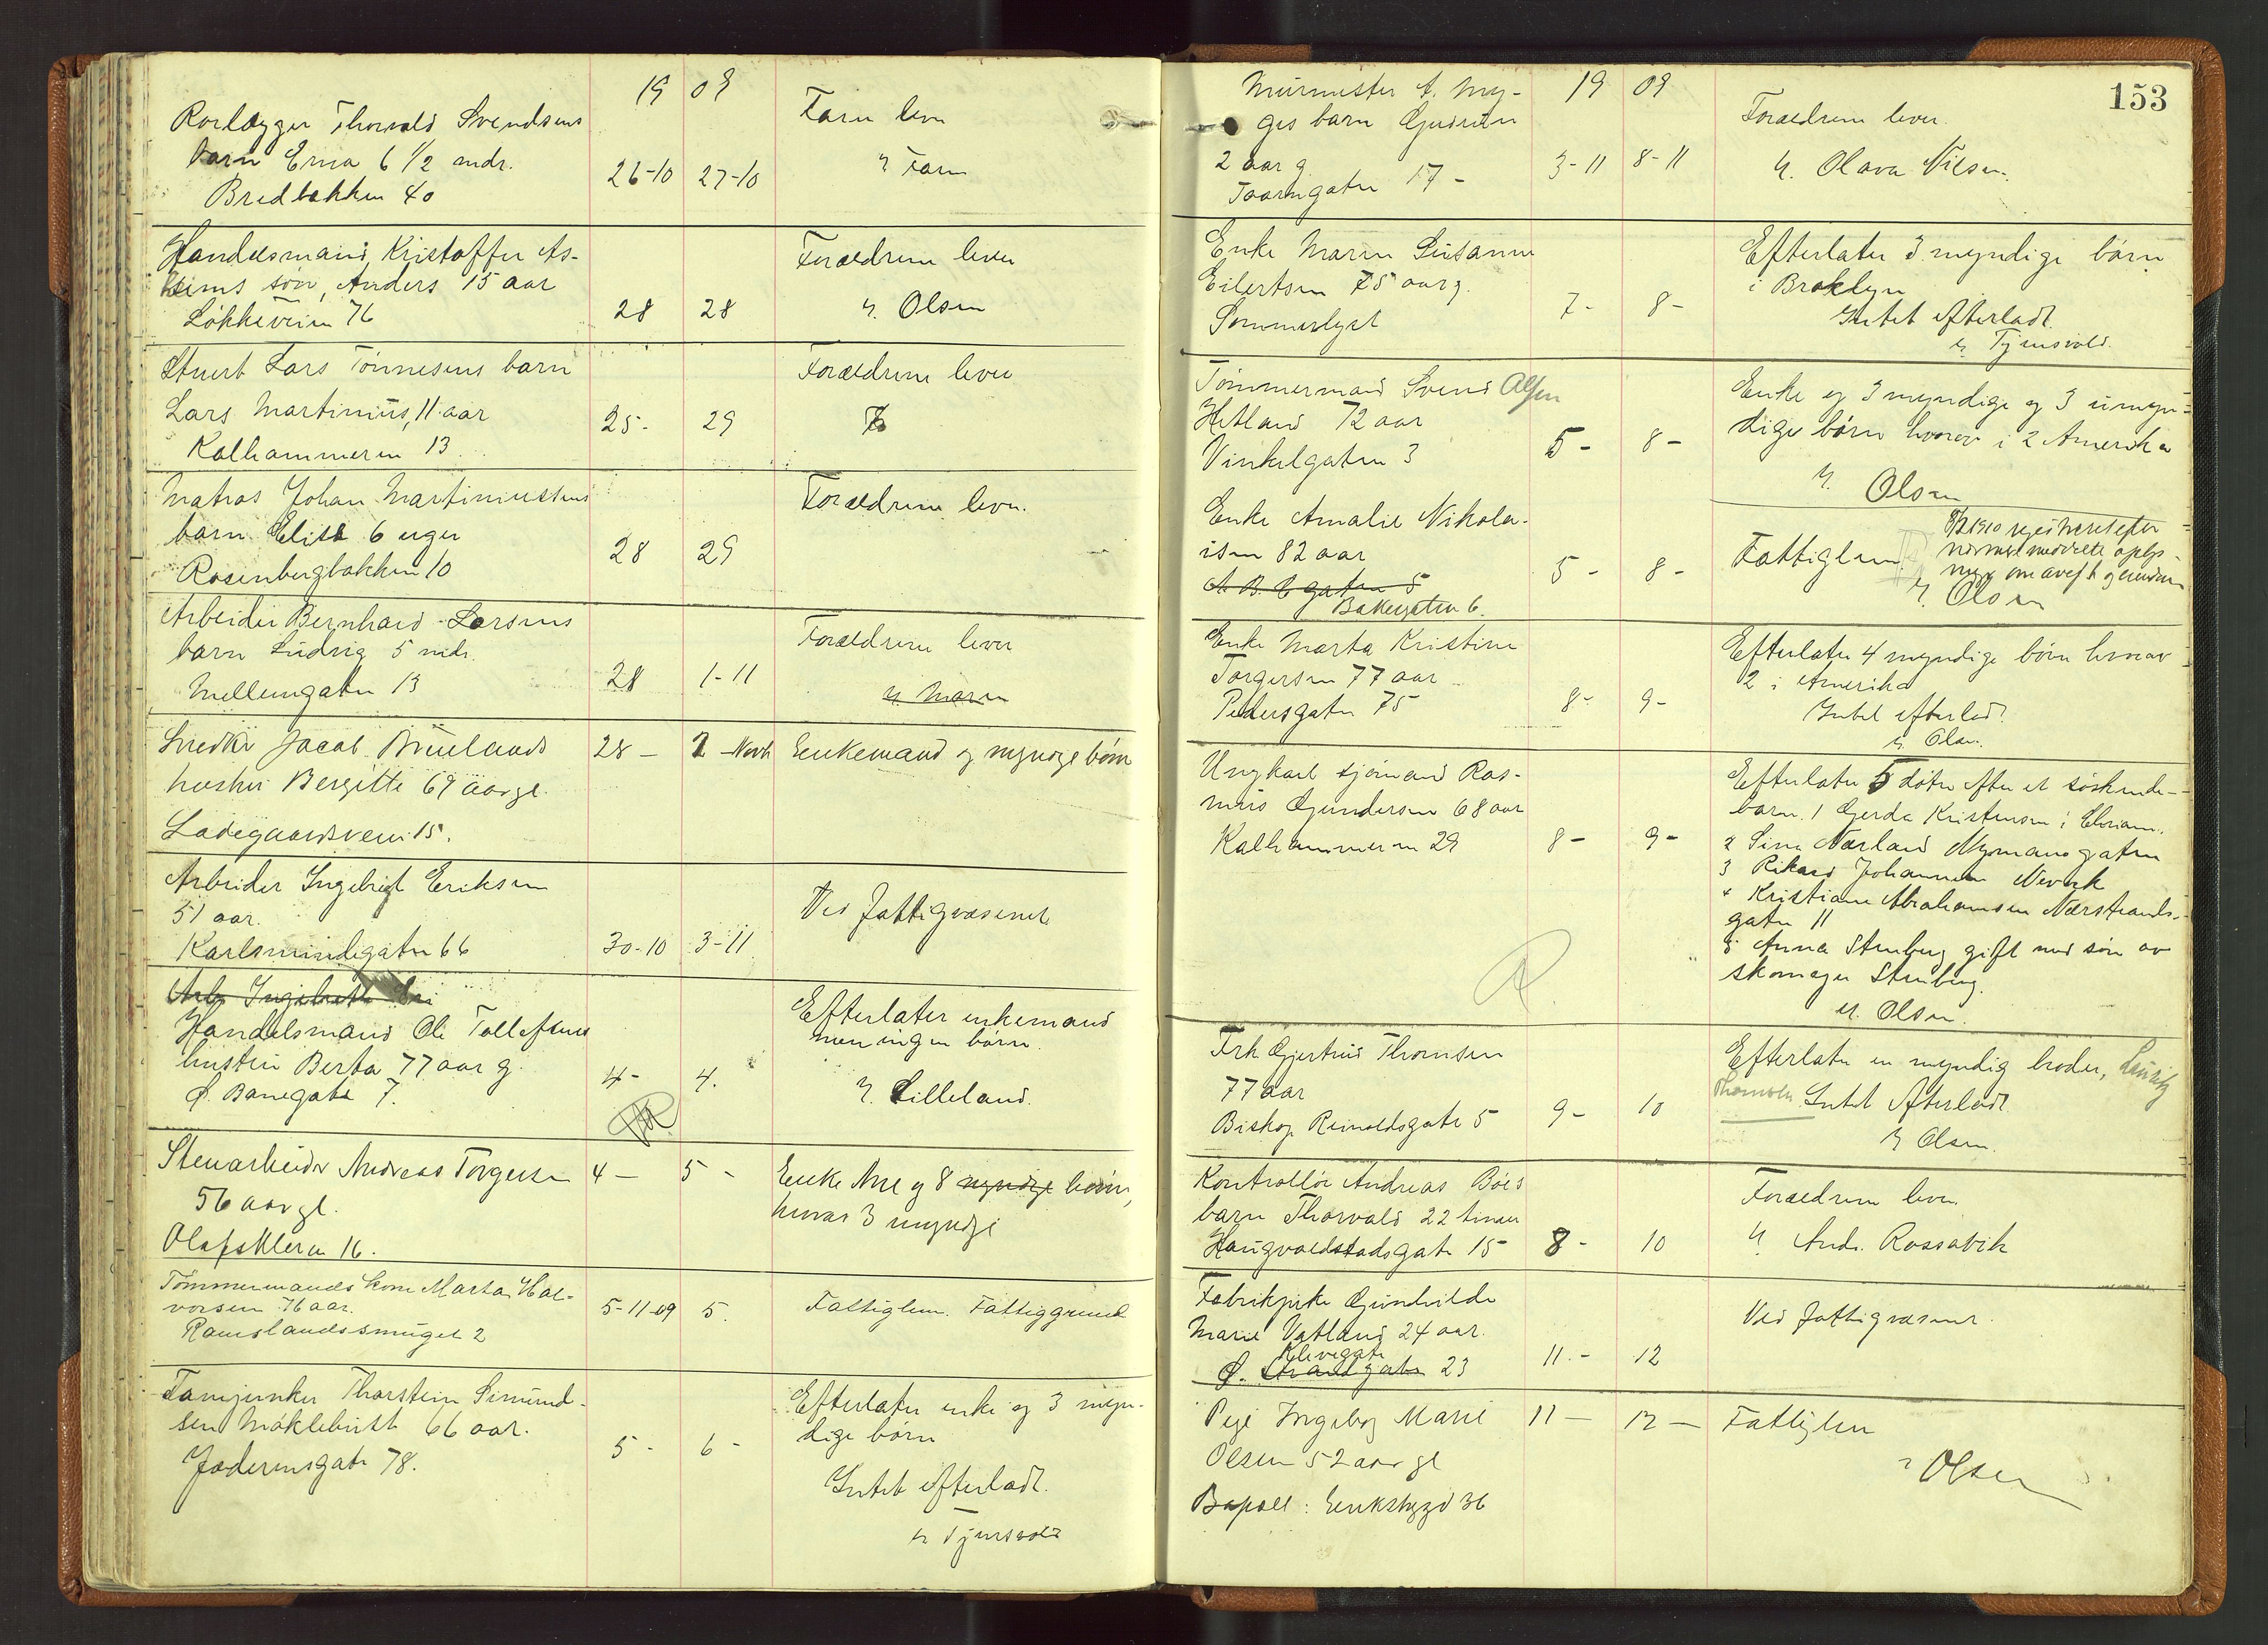 19 09
Rorlægger Thorvald Svendsens
barn Erna 6 1/2 mdr.
Bredbakken 40
26-10 27-10
Farn lever
v. Farn
Handelsmand Kristoffer As-
heims søn, Anders 15 aar
Løkkeveien 76
28 28
Forældrene lever
v. Olsen
Stuert Lars Tønnesens barn
Lars Martinius, 11 aar
Kalhammeren 13
25- 29
Forældrene lever
Matros Johan Martiniussens
barn Elise 6 uger
Rosenbergbakken 10
28 29
Forældrene lever.
Arbeider Bernhard Larsens
barn Ludvig 5 mdr.
Mellemgaten 13
28 1-11
Forældrene lever
v. Maren
Snedker Jacob Bruelands
hustru Bergitte 69 aar gl.
Ladegaardsveien 15.
28 - 2 - Novb
Enkemand og myndige børn
Arbeider Ingebrigt Eriksen
51 aar.
Karlsmindegaten 66
30-10 3-11
Ved Fattigvæsenet
Arb. Ingebrett Eri
Handelsmand Ole Tollefsens
hustru Berta 77 aar g.
Ø. Banegate 7.
4- 4.
Efterlater enkemand
men ingen børn.
v. Lilleland.
Stenarbeider Andreas Torgersen
56 aar gl.
Olafskleven 16.
4 - 5 -
Enke Ane og 8 myndige børn,
hvorav 3 myndige
Tømmermands kone Marta Hal-
vorsen 76 aar.
Ramslandssmuget 2
5-11-09 5.
Fattiglem. Fattiggravet
Fanejunker Thorstein Simund-
sen Møklebust 66 aar.
Jæderensgate 78.
5 - 6 -
Efterlater enke og 3 myn-
dige børn
Intet efterladt.
v. Tjensvold
153
19 09
Murmester A. My-
ges barn Gudrun
2 aar g.
Taarngaten 17 -
3-11 8-11
Forældrene lever.
v. Olava Nilsen.
Enke Maren Susanne
Eilertsen 75 aar g.
Sommerlyst
7- 8-
Efterlater 3 myndige børn
i Broklyn
Intet efterladt.
v. Tjensvold.
Tømmermand Svend Olsen
Hetland 72 aar
Vinkelgaten 3
5- 8-
Enke og 3 myndige og 3 umyn-
dige børn hvorav i 2 Amerika
v. Olsen
Enke Amalie Nikola-
isen 82 aar
A. B. C gaten 5
Bakergaten 6.
5 - 8 -
Fattiglem
v. Olsen
Enke Marta Kristine
Torgersen 77 aar
Pedersgaten 75
8- 9-
Efterlater 4 myndige børn hvorav
2 i Amerika
Intet efterladt.
v. Olsen.
Ungkarl sjømand Ras-
mus Gundersen 68 aar
Kalhammeren 29
8- 9-
Efterlater 5 døtre efter et søskende-
barn. 1 Gerda Kristensen i Kristiania.
2 Sine Nærland Nymansgaten
3 Rikard Johannesen Nevork
4 Kristiane Abrahamsen Nærstrands-
gaten 11
5 Anna Stenberg gift med søn av
skomager Stenberg.
v. Olsen.
Frk Gjertrud Thomsen
77 aar
Biskop Reinaldsgate 5
9- 10
Efterlater en myndig broder, Lauritz
Thomsen. Intet Efterladt
v. Olsen.
Kontrollør Andreas Bøes
barn Thorvald 22 timer
Haugvaldstadsgate 15
8- 10
Forældrene lever.
v. Andr. Rossavik
Fabrikpike Gunhilda
Marie Vatland 24 aar.
Klevegate
Ø. Strandgate 23
11.- 12
Ved Fattigvæsenet.
Pige Ingeborg Marie
Olsen 52 aar gl
Bopæl: Enkebygd 36
11 - 12 -
Fattiglem
v Olsen